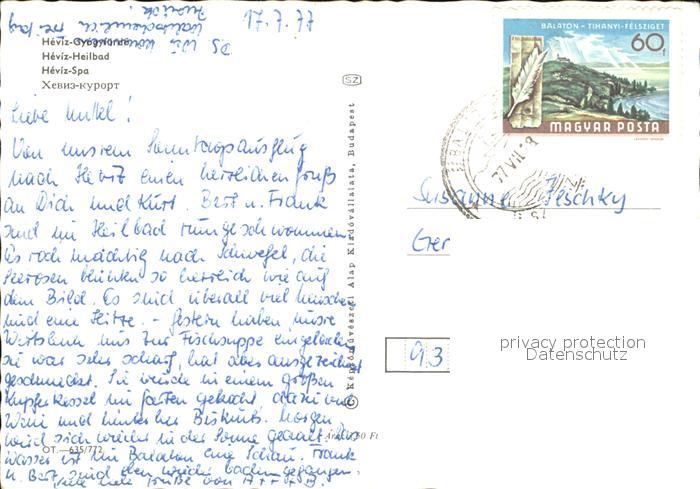 17.7.77
PS Wir kommen
wahrscheinlich Freitag
zurück!
Hévíz-Gyógyfürdő
Hévíz-Heilbad
Hévíz-Spa
Хевиз-курорт
SZ
BALATON - TIHANYI-FÉLSZIGET
60f
MAGYAR POSTA
77 VII.
Liebe Mutti!
Von unserem Sonntagsausflug
nach Héviz einen herzlichen Gruß
an Dich und Kurt. Bert u. Frank
sind im Heilbad rumgeschwommen.
Es roch mächtig nach Schwefel, die
Seerosen blühten so herrlich wie auf
dem Bild. Es sind überall viel Menschen
und eine Hitze. - Gestern haben unsre
Wirtsleute uns zur Fischsuppe eingeladen
sie war sehr scharf, hat aber ausgezeichnet
geschmeckt. Sie wurde in einem großen
Kupferkessel im Garten gekocht, dazu
Wein und hinterher Biskuits. Morgen
wird sich wieder in der Sonne geaalt. Das
Wasser ist im Balaton eine Schau. Frank
u. Bert sind eben wieder baden gegangen.
Viele Grüße von
Susanne Peschky
Ger
93
© Képzőművészeti Alap Kiadóvállalata, Budapest
privacy protection
Datenschutz
OT.—635/772
Ft